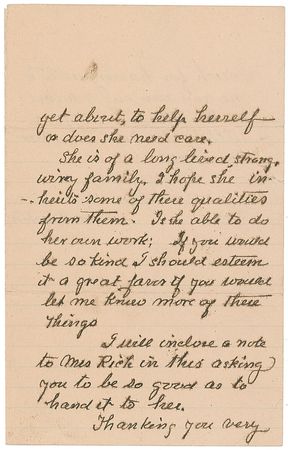 yet about, to help herself
or does she need care.
She is of a long lived, strong,
wirey family. I hope she in-
herits some of these qualities
from them. Is she able to do
her own work; If you would
be so kind I should esteem
it a great favor if you would
let me know more of these
things
I will inclose a note
to Mrs Rich in this asking
you to be so good as to
hand it to her.
Thanking you very